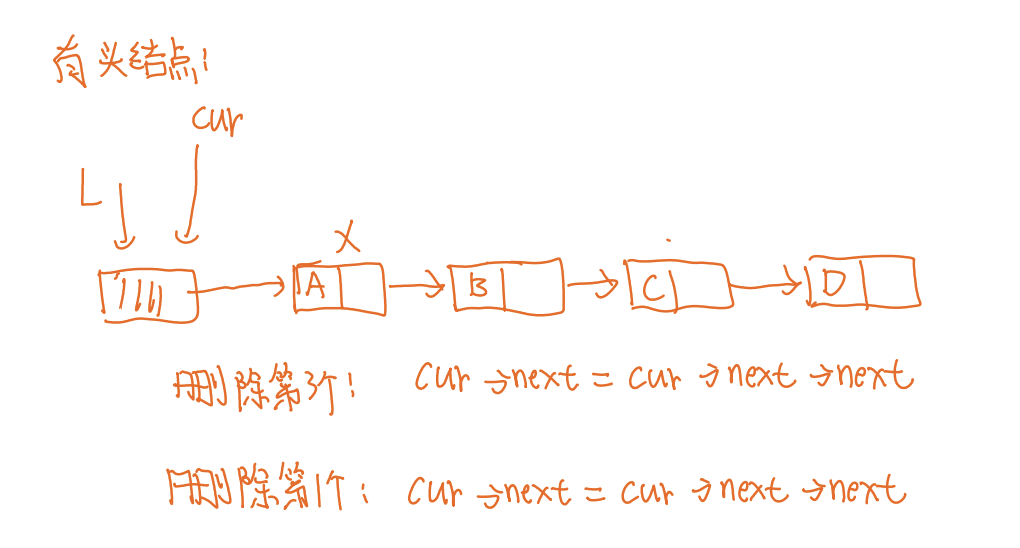 有头结点:
cur
L
X
A B C D
删除第3个: cur→next = cur→next→next
删除第1个: cur→next = cur→next→next